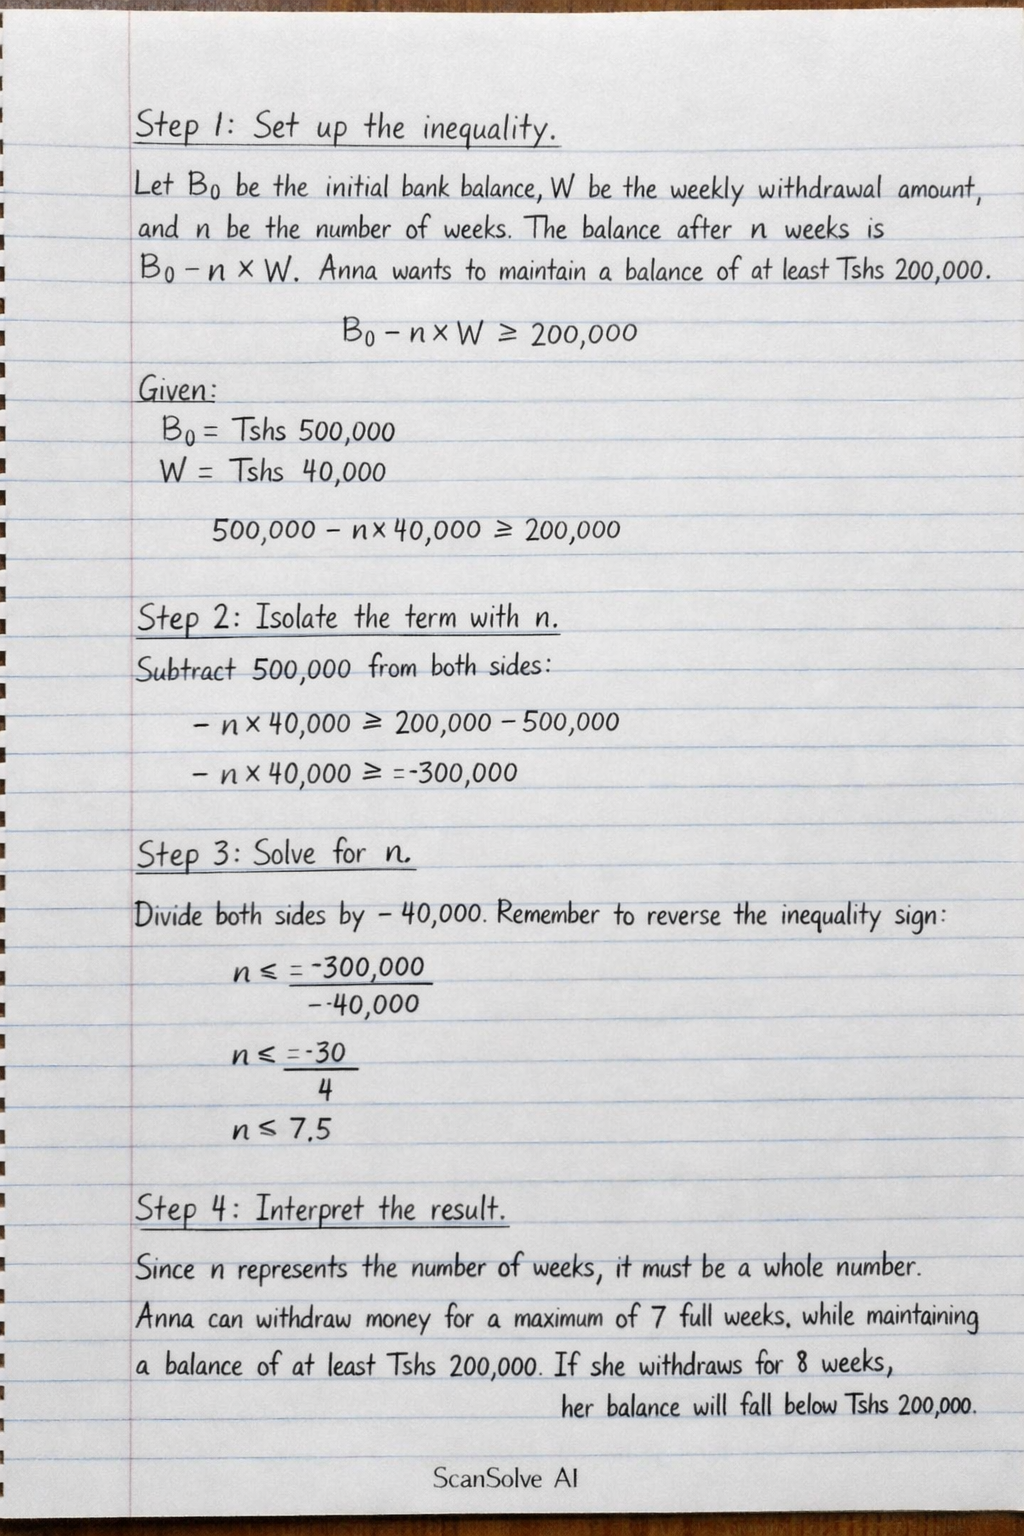 Step 1: Set up the inequality.
Let B₀ be the initial bank balance, W be the weekly withdrawal amount,
and n be the number of weeks. The balance after n weeks is
B₀ – n × W. Anna wants to maintain a balance of at least Tshs 200,000.
B₀ – n × W ≥ 200,000
Given:
B₀ = Tshs 500,000
W = Tshs 40,000
500,000 – n × 40,000 ≥ 200,000
Step 2: Isolate the term with n.
Subtract 500,000 from both sides:
– n × 40,000 ≥ 200,000 – 500,000
– n × 40,000 ≥ =-300,000
Step 3: Solve for n.
Divide both sides by – 40,000. Remember to reverse the inequality sign:
n ≤ =-300,000
–-40,000
n ≤ =-30
4
n ≤ 7.5
Step 4: Interpret the result.
Since n represents the number of weeks, it must be a whole number.
Anna can withdraw money for a maximum of 7 full weeks. while maintaining
a balance of at least Tshs 200,000. If she withdraws for 8 weeks,
her balance will fall below Tshs 200,000.
ScanSolve AI